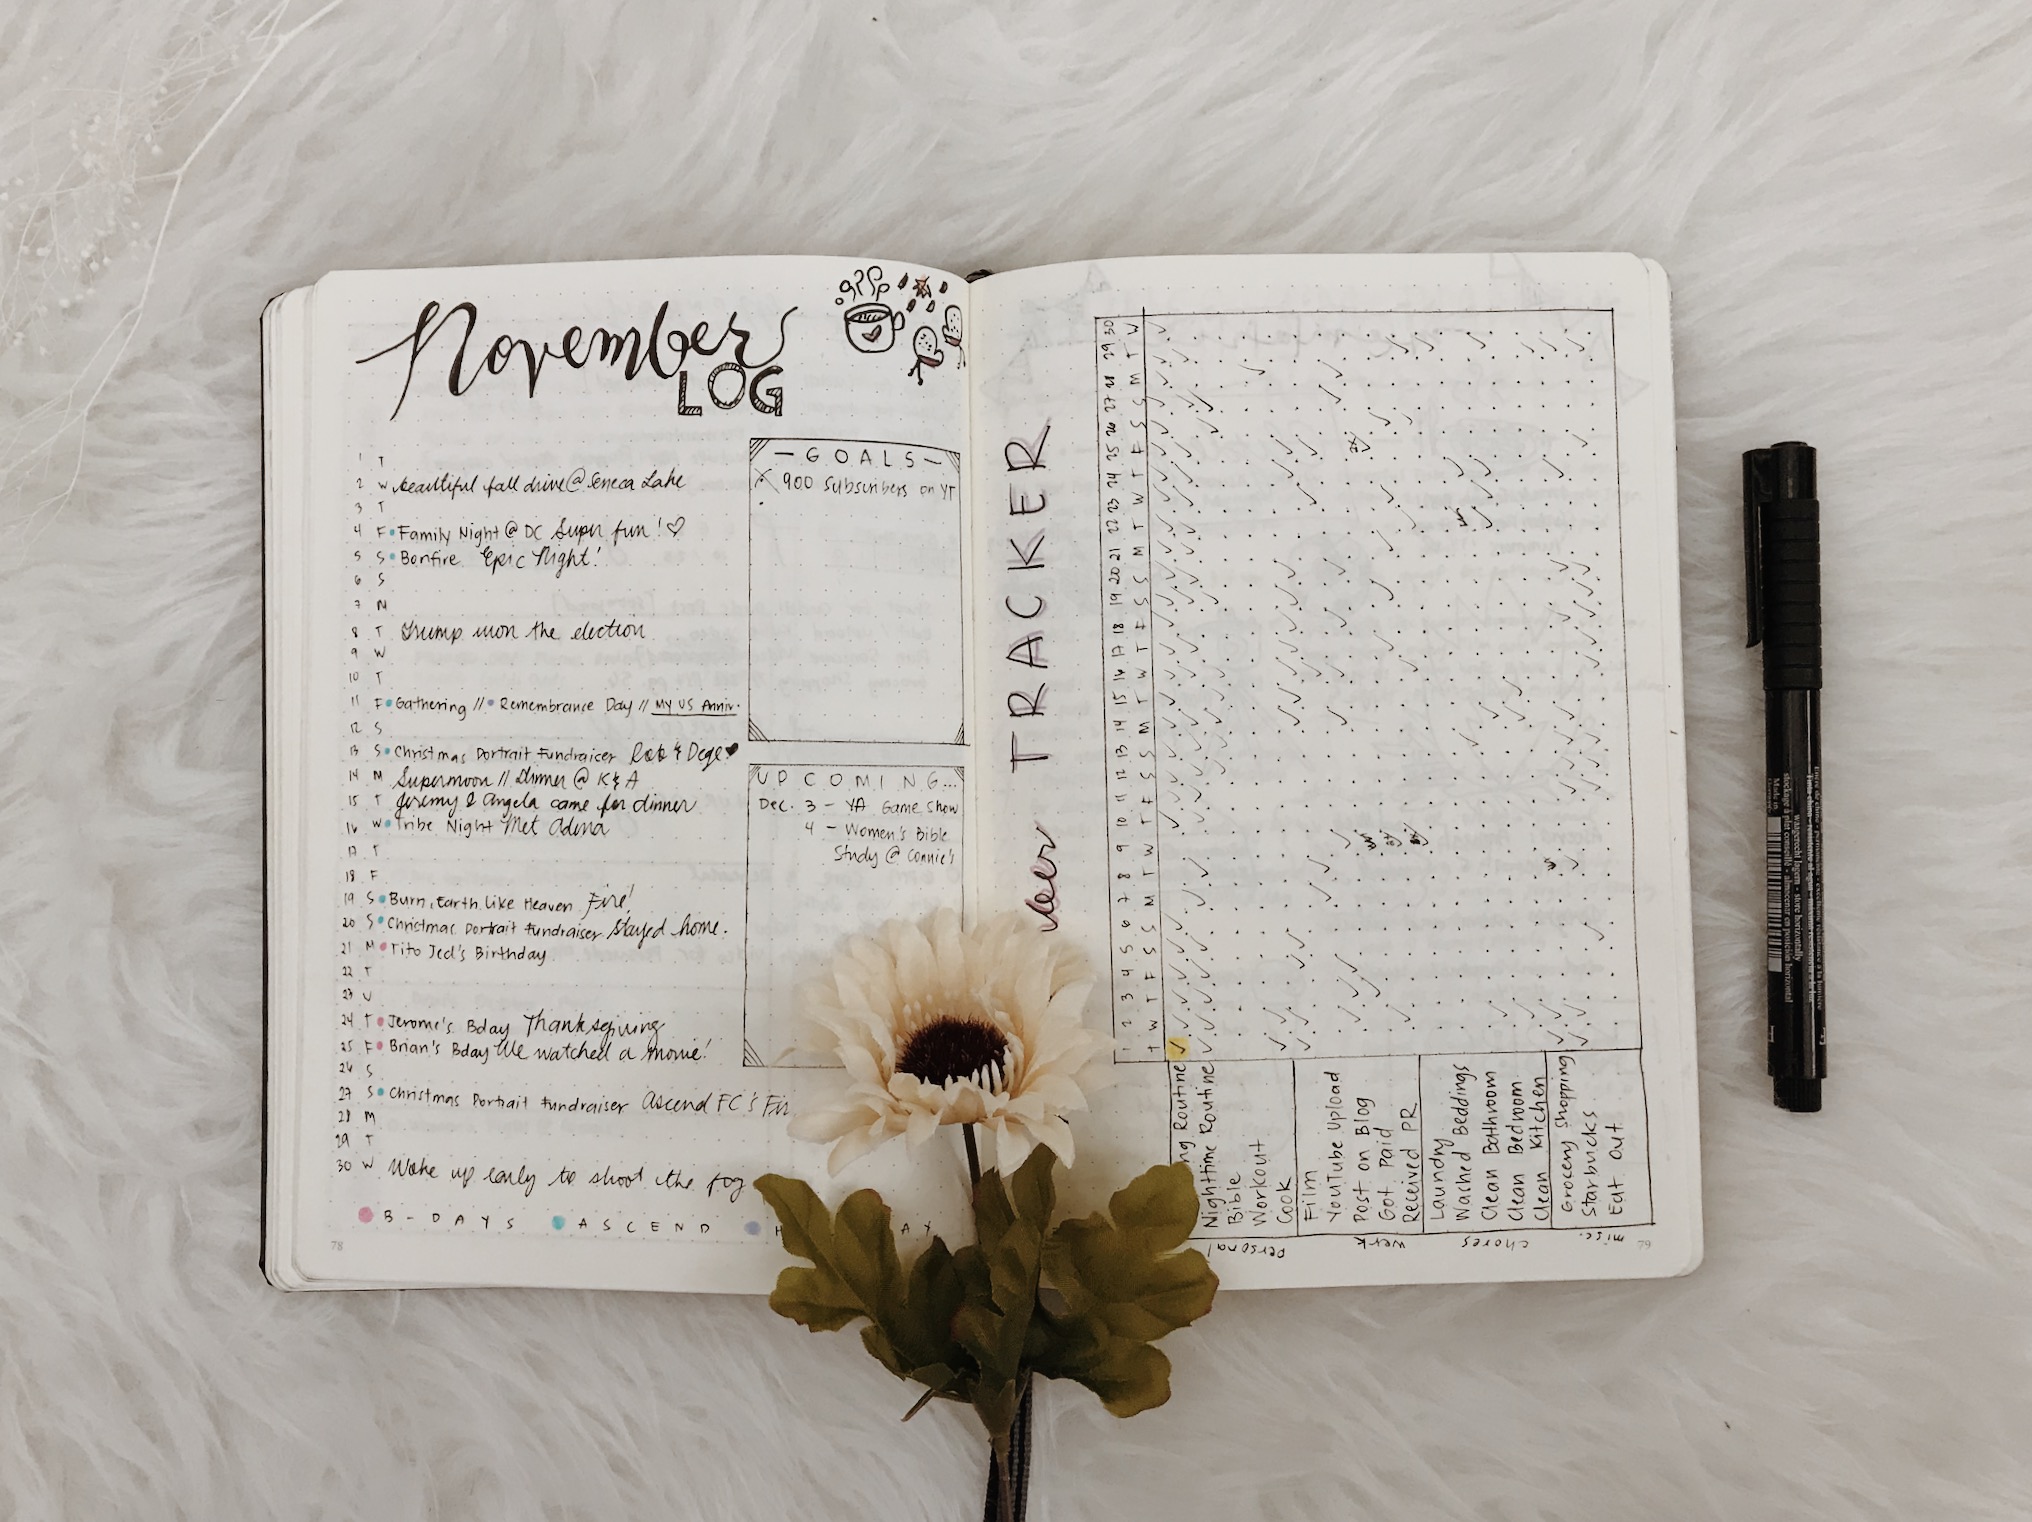 November
LOG
1 T
2 W Beautiful fall drive @ Seneca Lake
3 T
4 F Family Night @ DC Super fun! ♡
5 S Bonfire Epic Night!
6 S
7 M
8 T Trump won the election
9 W
10 T
11 F Gathering // Remembrance Day // MY US Anniv.
12 S
13 S Christmas Portrait Fundraiser Rob & Dege ♥
14 M Supermoon // Dinner @ K & A
15 T Jeremy & Angela came for dinner
16 W Tribe Night Met Adena
17 T
18 F
19 S Burn, Earth Like Heaven Fire!
20 S Christmas Portrait Fundraiser Stayed home.
21 M Tito Jed's Birthday
22 T
23 W
24 T Jerome's Bday Thanksgiving
25 F Brian's Bday We watched a movie!
26 S
27 S Christmas Portrait Fundraiser Ascend FC's
28 M
29 T
30 W Wake up early to shoot the fog
B-DAYS ASCEND
78
- GOALS -
900 Subscribers on YT
UPCOMING...
Dec. 3 - YA Game Show
4 - Women's Bible
Study @ Connie's
TRACKER
1 2 3 4 5 6 7 8 9 10 11 12 13 14 15 16 17 18 19 20 21 22 23 24 25 26 27 28 29 30
T W T F S S M T W T F S S M T W T F S S M T W T F S S M T W
Routine
Nighttime Routine
Bible
Workout
Cook
Film
YouTube Upload
Post on Blog
Got Paid
Received PR
Laundry
Washed Beddings
Clean Bathroom
Clean Bedroom
Clean Kitchen
Grocery Shopping
Starbucks
Eat Out
Personal
werk
chores
misc.
79